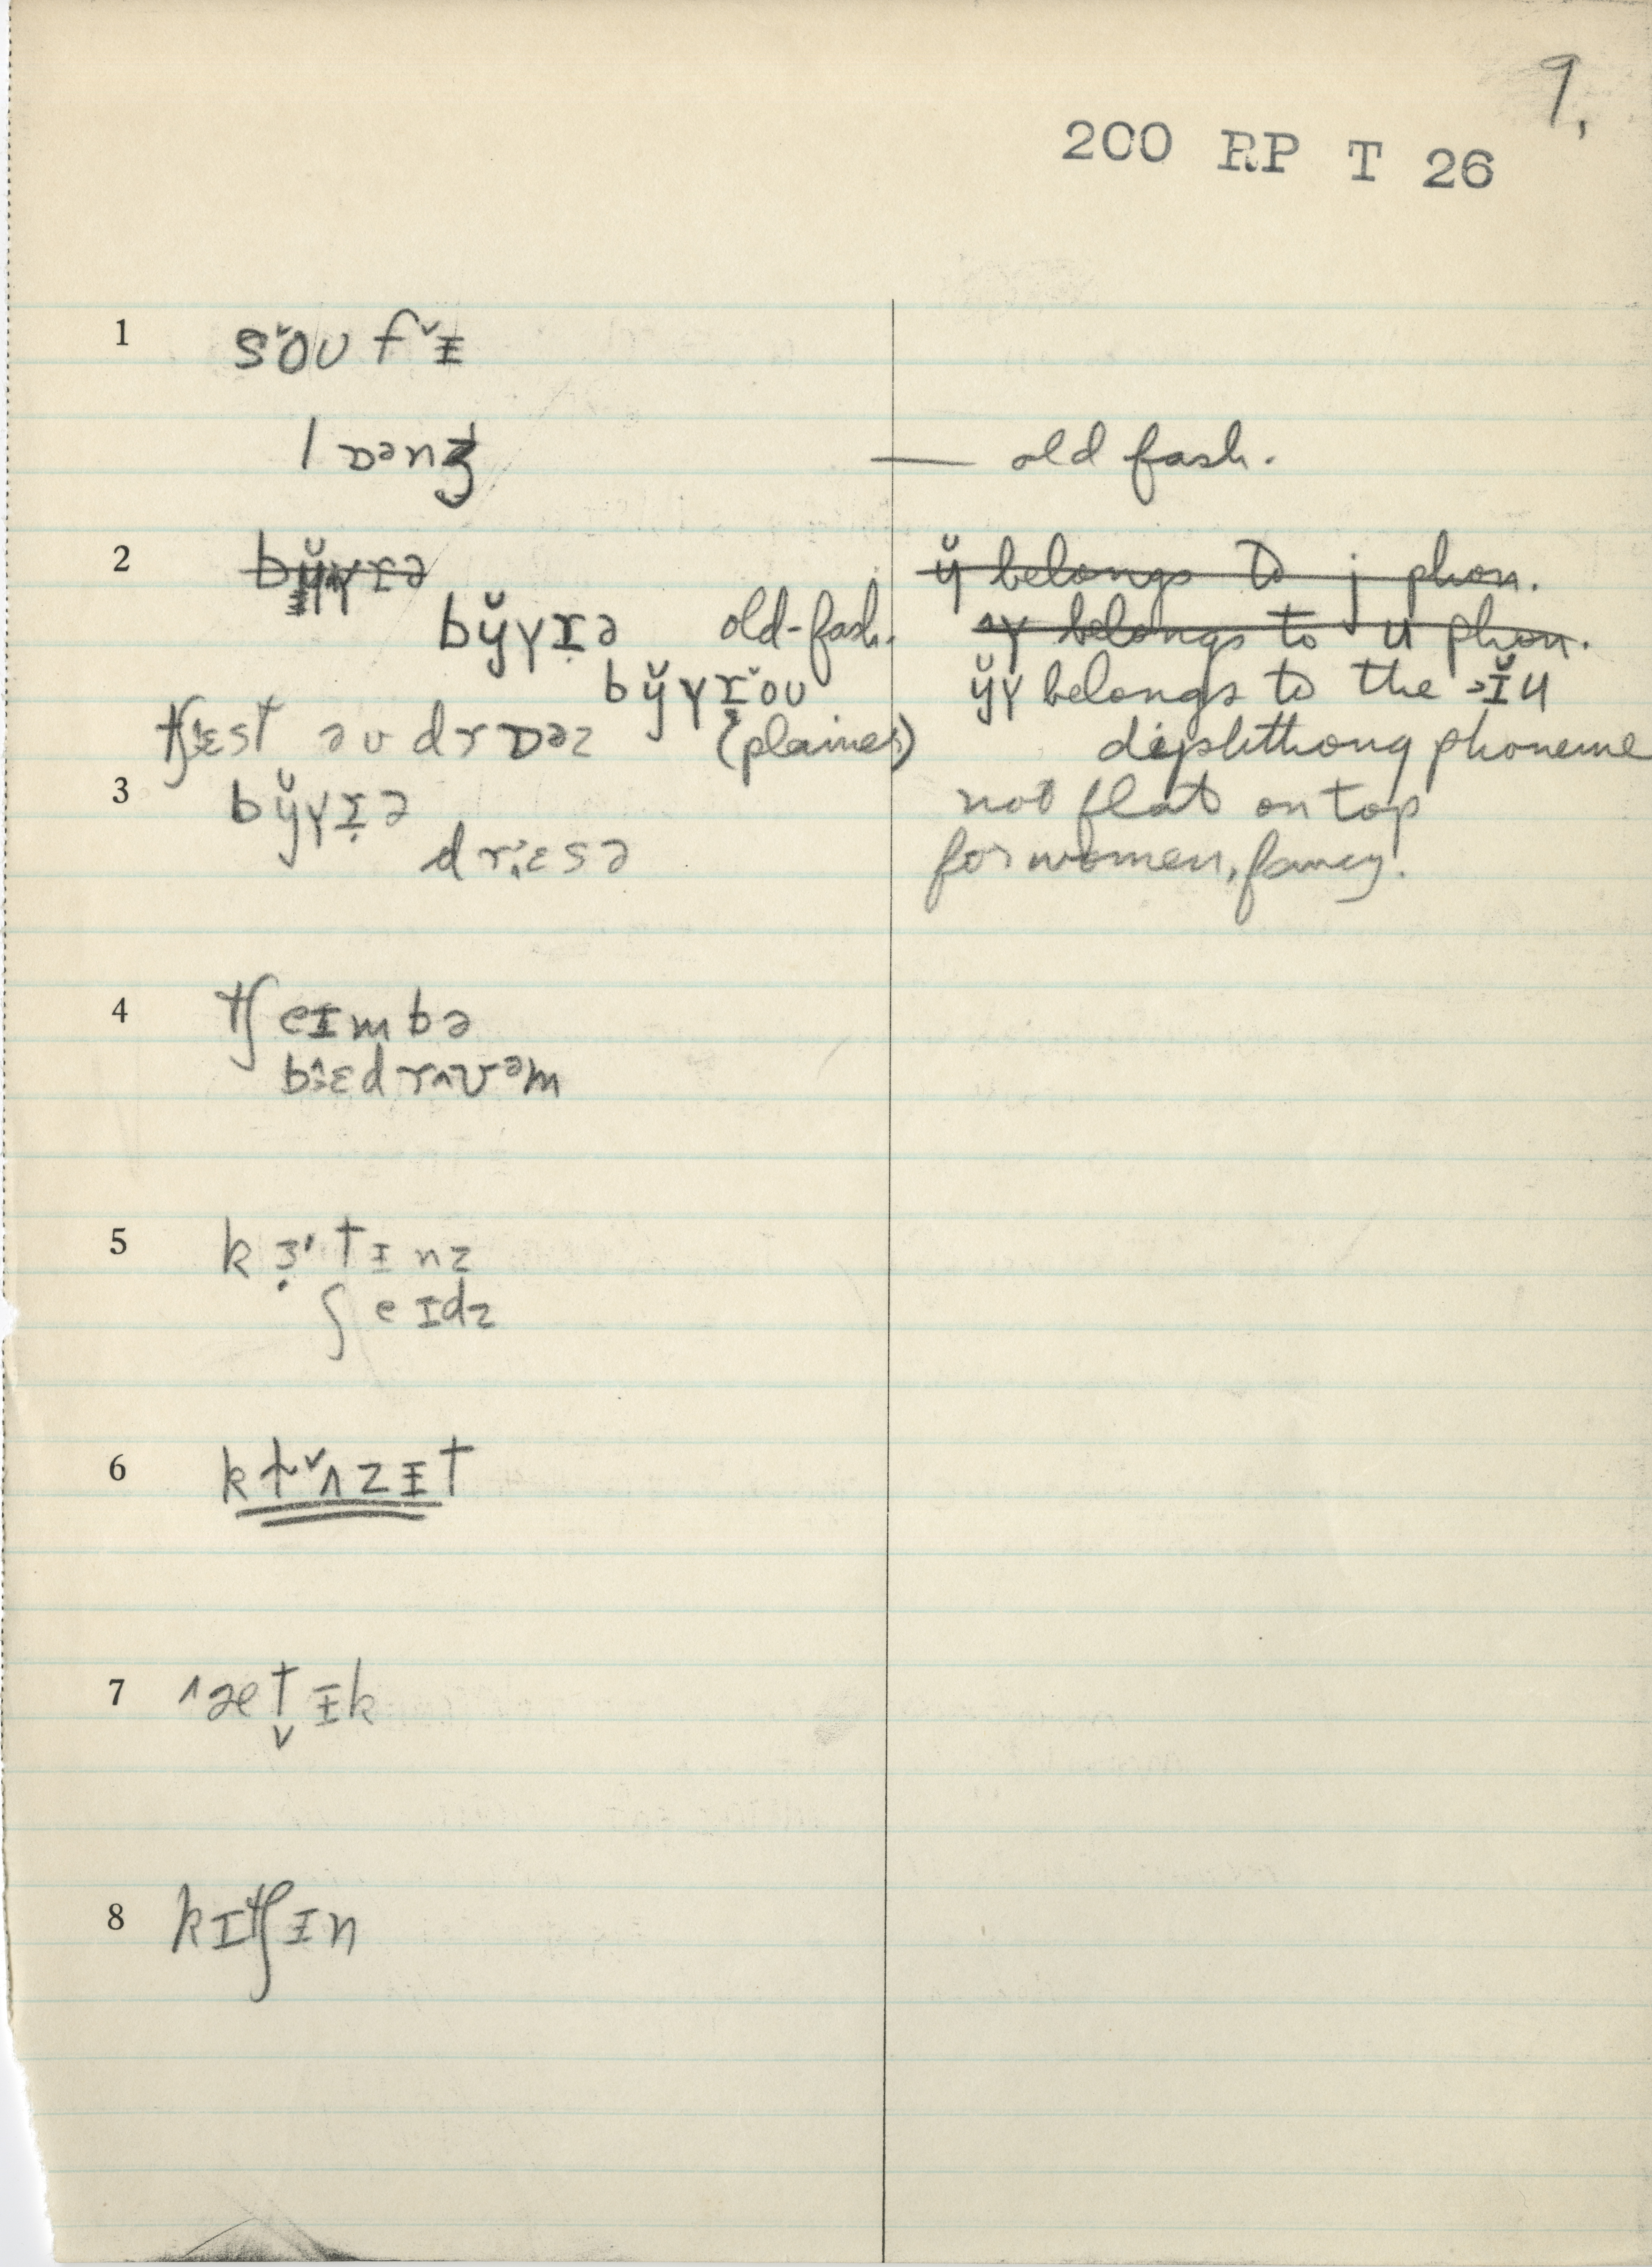 9.
200 RP T 26
1 sˇoʊ fˇɪ̵
lɒənʒ — old fash.
2 by̆ʏɪə y̆ belongs to j phon.
by̆ʏɪ̣ə old-fash. ^ʏ belongs to u phon.
by̆ʏɪ̣ˇoʊ y̆ʏ belongs to the >ɪ̆u
tʃɛst əv drɒəz (plainer) diphthong phoneme
3 by̆ʏɪ̣ə not flat on top
drɛsə for women, fancy.
4 tʃeɪmbə
bɛdrʌʊᵊm
5 kɜ̣'tɪ̵nz
ʃeɪdz
6 klˇʌzɪ̵t
7 ^æt̬ɪ̵k
8 kɪtʃɪ̵n